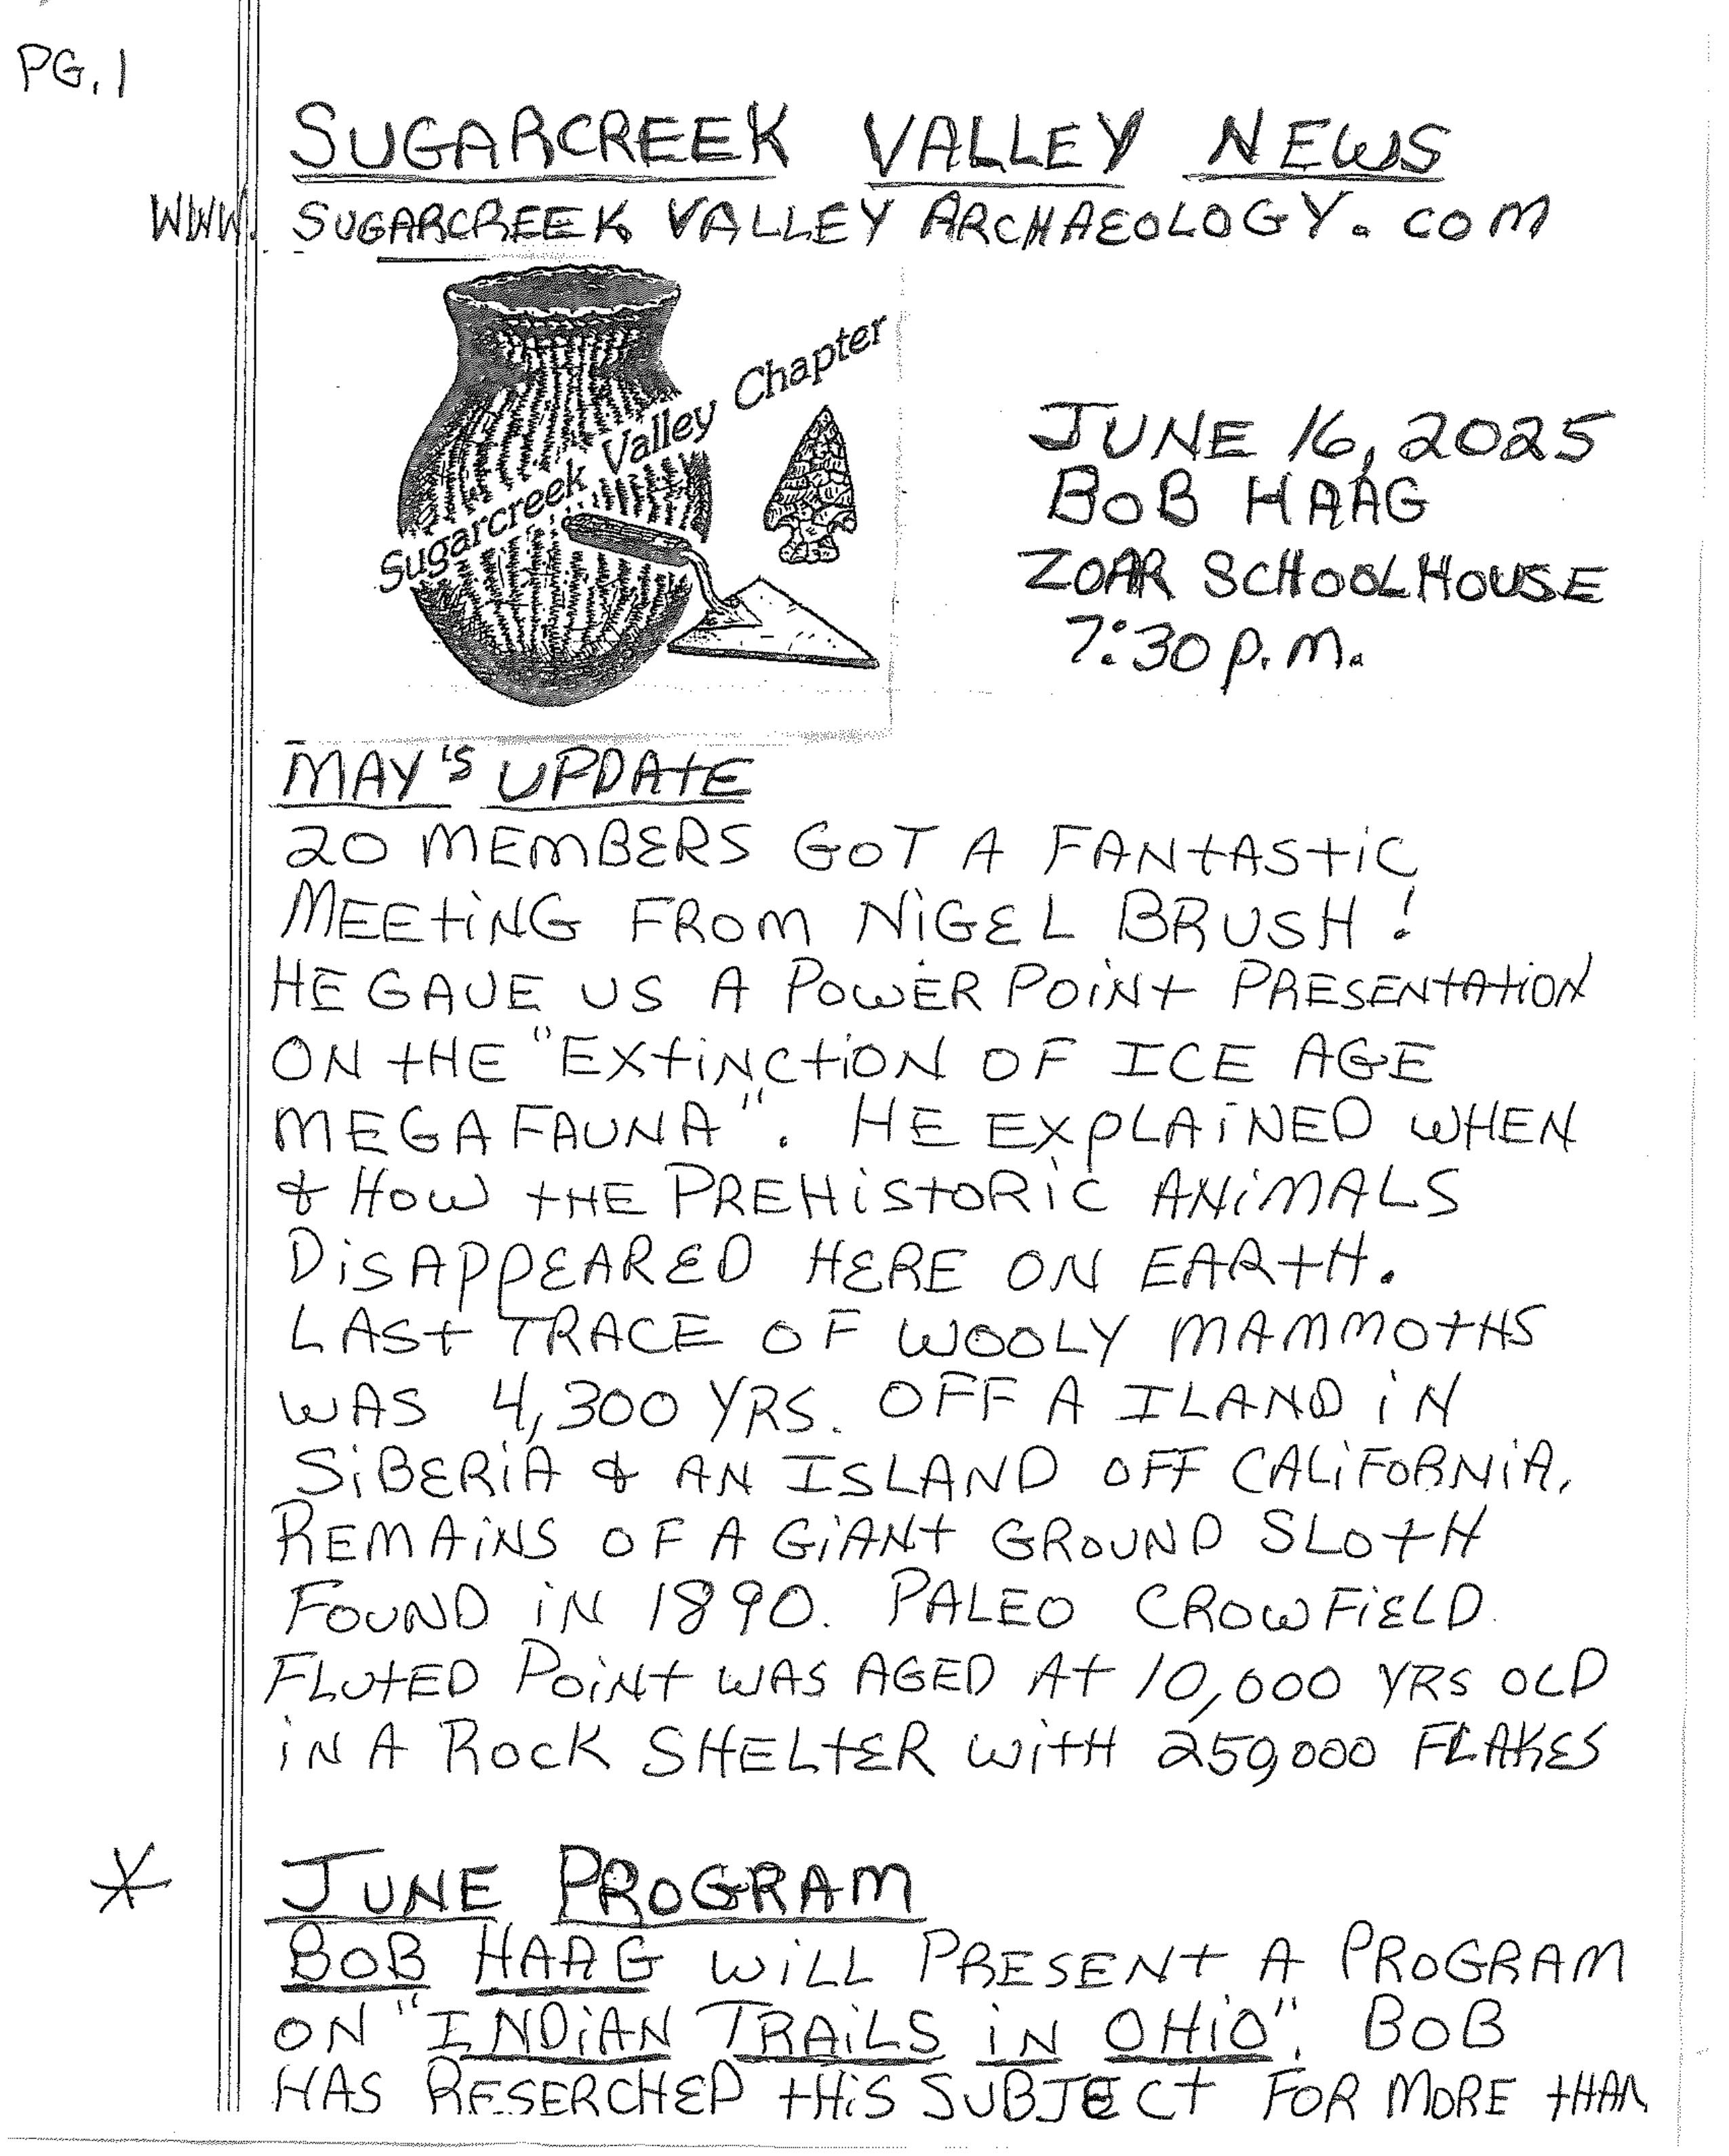 PG. 1
SUGARCREEK VALLEY NEWS
WWW. SUGARCREEK VALLEY ARCHAEOLOGY. COM
Sugarcreek Valley Chapter
JUNE 16, 2025
BOB HAAG
ZOAR SCHOOLHOUSE
7:30 p.m.
MAY'S UPDATE
20 MEMBERS GOT A FANTASTIC
MEETING FROM NIGEL BRUSH!
HE GAVE US A POWER POINT PRESENTATION
ON THE "EXTINCTION OF ICE AGE
MEGA FAUNA". HE EXPLAINED WHEN
& HOW THE PREHISTORIC ANIMALS
DISAPPEARED HERE ON EARTH.
LAST TRACE OF WOOLY MAMMOTHS
WAS 4,300 YRS. OFF A ILAND IN
SIBERIA & AN ISLAND OFF CALIFORNIA.
REMAINS OF A GIANT GROUND SLOTH
FOUND IN 1890. PALEO CROWFIELD
FLUTED POINT WAS AGED AT 10,000 YRS OLD
IN A ROCK SHELTER WITH 250,000 FLAKES
* JUNE PROGRAM
BOB HAAG WILL PRESENT A PROGRAM
ON "INDIAN TRAILS IN OHIO". BOB
HAS RESERCHED THIS SUBJECT FOR MORE THAN